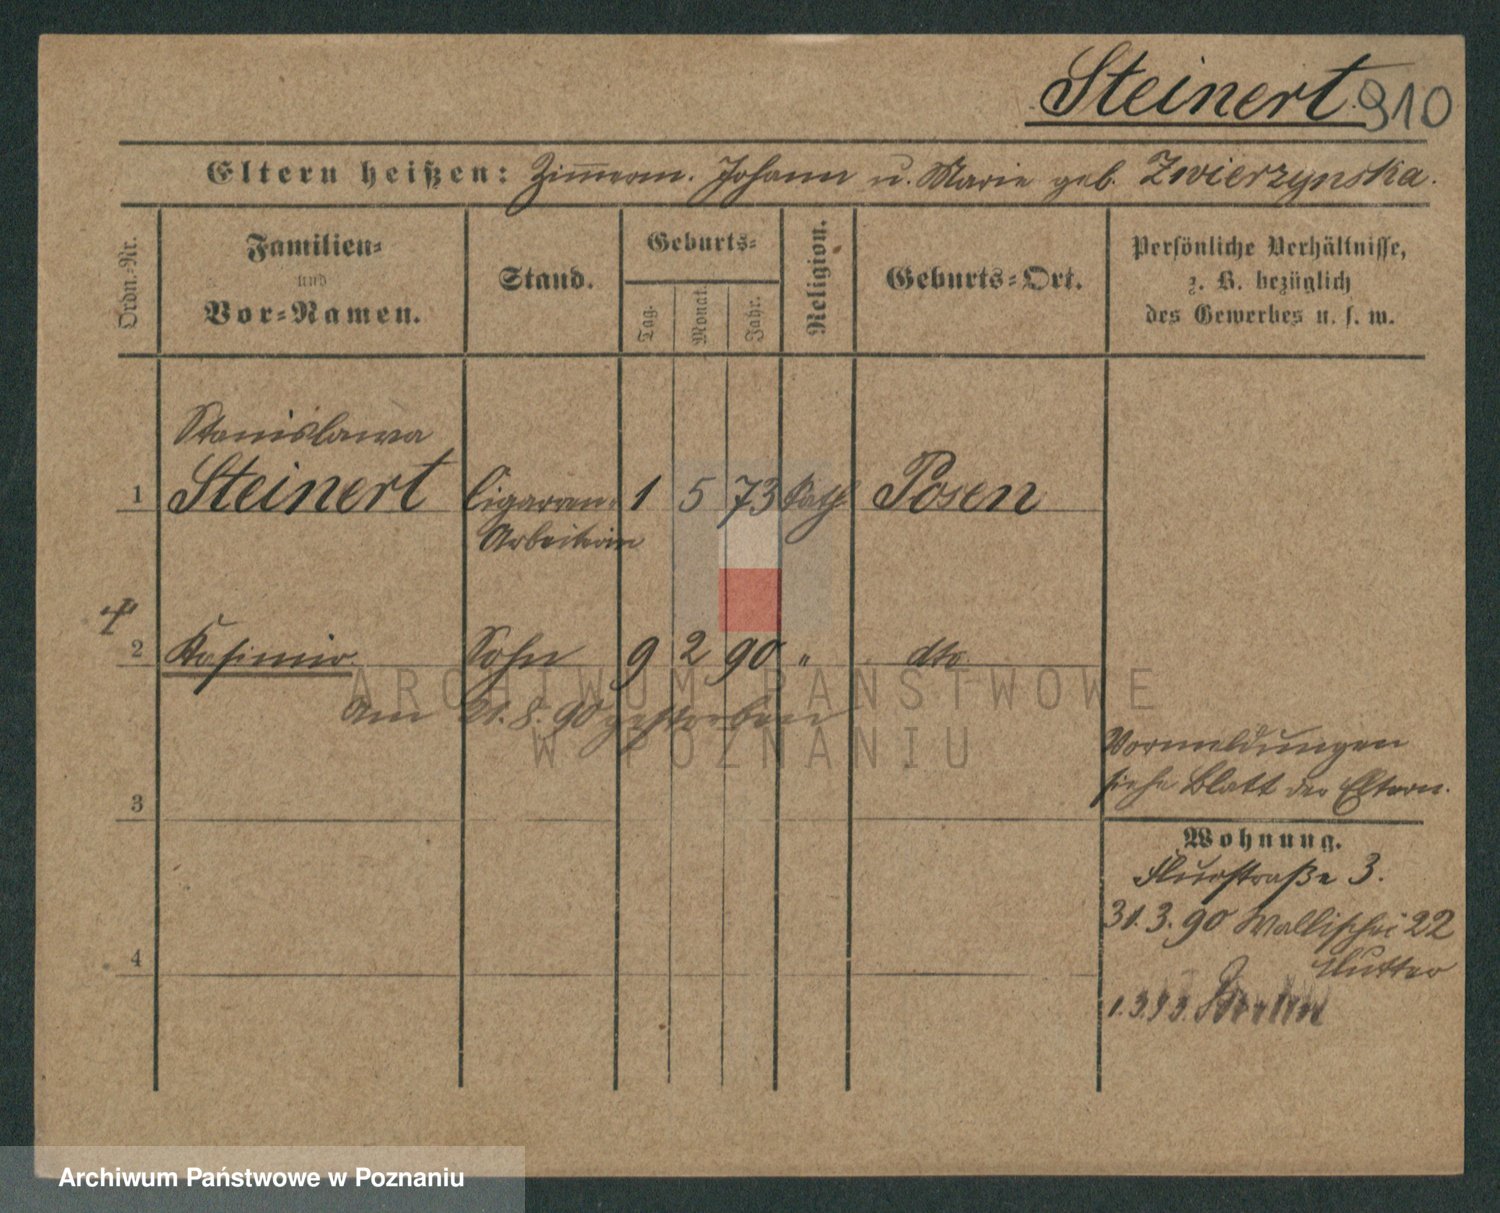 Steinert 910
Eltern heißen: Zimmerm. Johann u. Marie geb. Zwierzynska.
Ordn.=Nr.
Familien=
und
Vor=Namen.
Stand.
Geburts=
Tag.
Monat.
Jahr.
Religion.
Geburts=Ort.
Persönliche Verhältnisse,
z. B. bezüglich
des Gewerbes u. s. w.
Stanislawa
1 Steinert Cigarren= 1 5 73 Kath. Posen
Arbeiterin
2 Kasimir Sohn 9 2 90 " dto
Am 21.8.90 gestorben
ARCHIWUM PAŃSTWOWE
W POZNANIU
Vormeldungen
siehe Blatt der Eltern.
3
Wohnung.
Flurstraße 3.
31.3.90 Wallischei 22
Mutter
4
1.3.93.
Archiwum Państwowe w Poznaniu